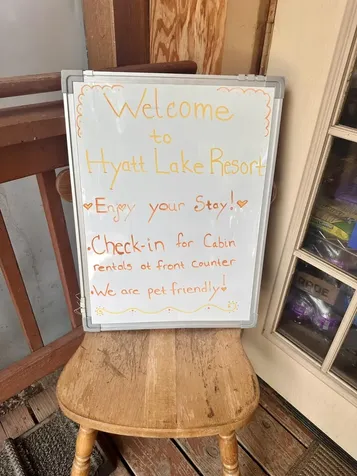 Welcome
to
Hyatt Lake Resort
♥Enjoy your Stay!♥
•Check-in for Cabin
rentals at front counter
•We are pet friendly!